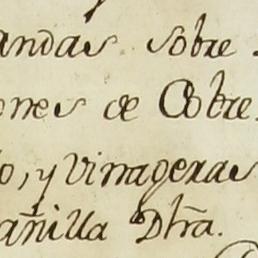 andas sobre
ones de Cobre
o, y Vinageras
añilla Dħra.